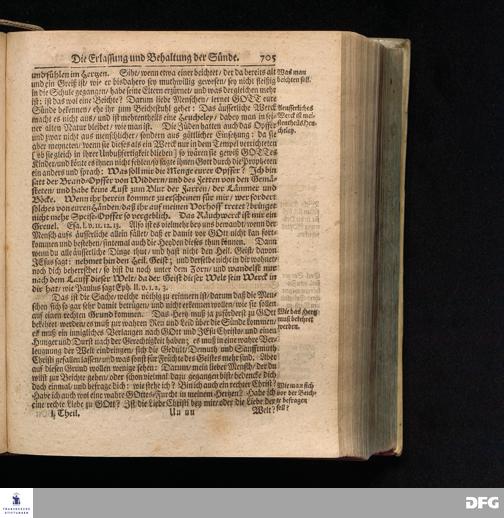 Die Erlassung und Behaltung der Sünde. 705
und fühlen im Hertzen. Siht, wenn etwa einer beichtet, der da bereits alt
und ein Greiß ist, wie er bißdahero sey muthwillig gewesen, sey nicht fleissig
in die Schule gegangen, habe seine Eltern erzürnet, und was dergleichen mehr
ist: ist das wol eine Beichte? Darum liebe Menschen, lernet GOTT eure
Sünde bekennen, ehe ihr zum Beichtstuhl gehet: Das äusserliche Werck
macht es nicht aus, und ist mehrentheils eine Heucheley, dabey man in sei-
ner alten Natur bleibet, wie man ist. Die Jüden hatten auch das Opffer
und zwar nicht aus menschlicher, sondern aus göttlicher Einsetzung, da sie
aber meyneten, wenn sie dieses als ein Werck nur in dem Tempel verrichteten
(ob sie gleich in ihrer Unbußfertigkeit blieben) so wären sie gewiß GOTTes
Kinder, und könte es ihnen nicht fehlen, so sagte ihnen Gott durch die Propheten
ein anders und sprach: Was soll mir die Menge eurer Opffer? Ich bin
satt der Brand-Opffer von Widdern, und des Fetten von den Gemä-
steten, und habe keine Lust zum Blut der Farren, der Lämmer und
Böcke. Wenn ihr herein kommet zu erscheinen für mir, wer fordert
solches von euren Händen, daß ihr auf meinen Vorhoff tretet? bringet
nicht mehr Speiß-Opffer so vergeblich. Das Räuchwerck ist mir ein
Greuel. Esa. I. v. 11. 12. 13. Also ist es vielmehr bey uns bewandt, wenn der
Mensch aufs äusserliche allein fället, daß er damit vor GOtt nicht kan fort-
kommen und bestehen, sintemal auch die Heyden dieses thun können. Dann
wenn du alle äusserliche Dinge thut, und hast nicht den Heil. Geist, davon
JEsus sagt: nehmet hin den Heil. Geist; und derselbe nicht in dir wohnet,
noch dich beherrschet, so bist du noch unter dem Zorn, und wandelst nur
nach dem Lauff dieser Welt, da der Geist dieser Welt sein Werck in
dir hat, wie Paulus sagt Eph. II. v. 1. 2. 3.
Das ist die Sache, welche nöthig zu erinnern ist, darum daß die Men-
schen sich so gar sehr damit betrügen, und nicht erkennen wollen, wie sie sollen
aus einem rechten Grund kommen. Das Hertz muß ja zuförderst zu GOtt
bekehret werden, es muß zur wahren Reu und Leid über die Sünde kommen,
es muß ein inniglíches Verlangen nach GOtt und JEsu Christo, und einen
Hunger und Durst nach der Gerechtigkeit haben; es muß in eine wahre Ver-
leugnung der Welt eindringen, sich die Gedult, Demuth und Sanfftmuth
Christi gefallen lassen, und was sonst für Früchte des Geistes mehr sind. Aber
auf diesen Grund wollen wenige sehen: Darum, mein lieber Mensch, der du
wilst zur Beichte gehen, oder schon viermal dazu gegangen bist, bedencke dich
doch einmal, und befrage dich: wie stehe ich? Bin ich auch ein rechter Christ?
Habe ich auch wol eine wahre GOttes-Furcht in meinem Hertzen? Habe ich
eine rechte Liebe zu GOtt? Ist die Liebe Christi bey mir, oder die Liebe der
I. Theil. Uu uu Welt?
Was man
beichten soll.
Aeusserliches
Werck ist mei-
stentheils Heu-
cheley.
Wie das Hertz
muß bekehret
werden.
Wie man sich
vor der Beich-
te befragen
soll?
FRANCKESCHE
STIFTUNGEN
DFG